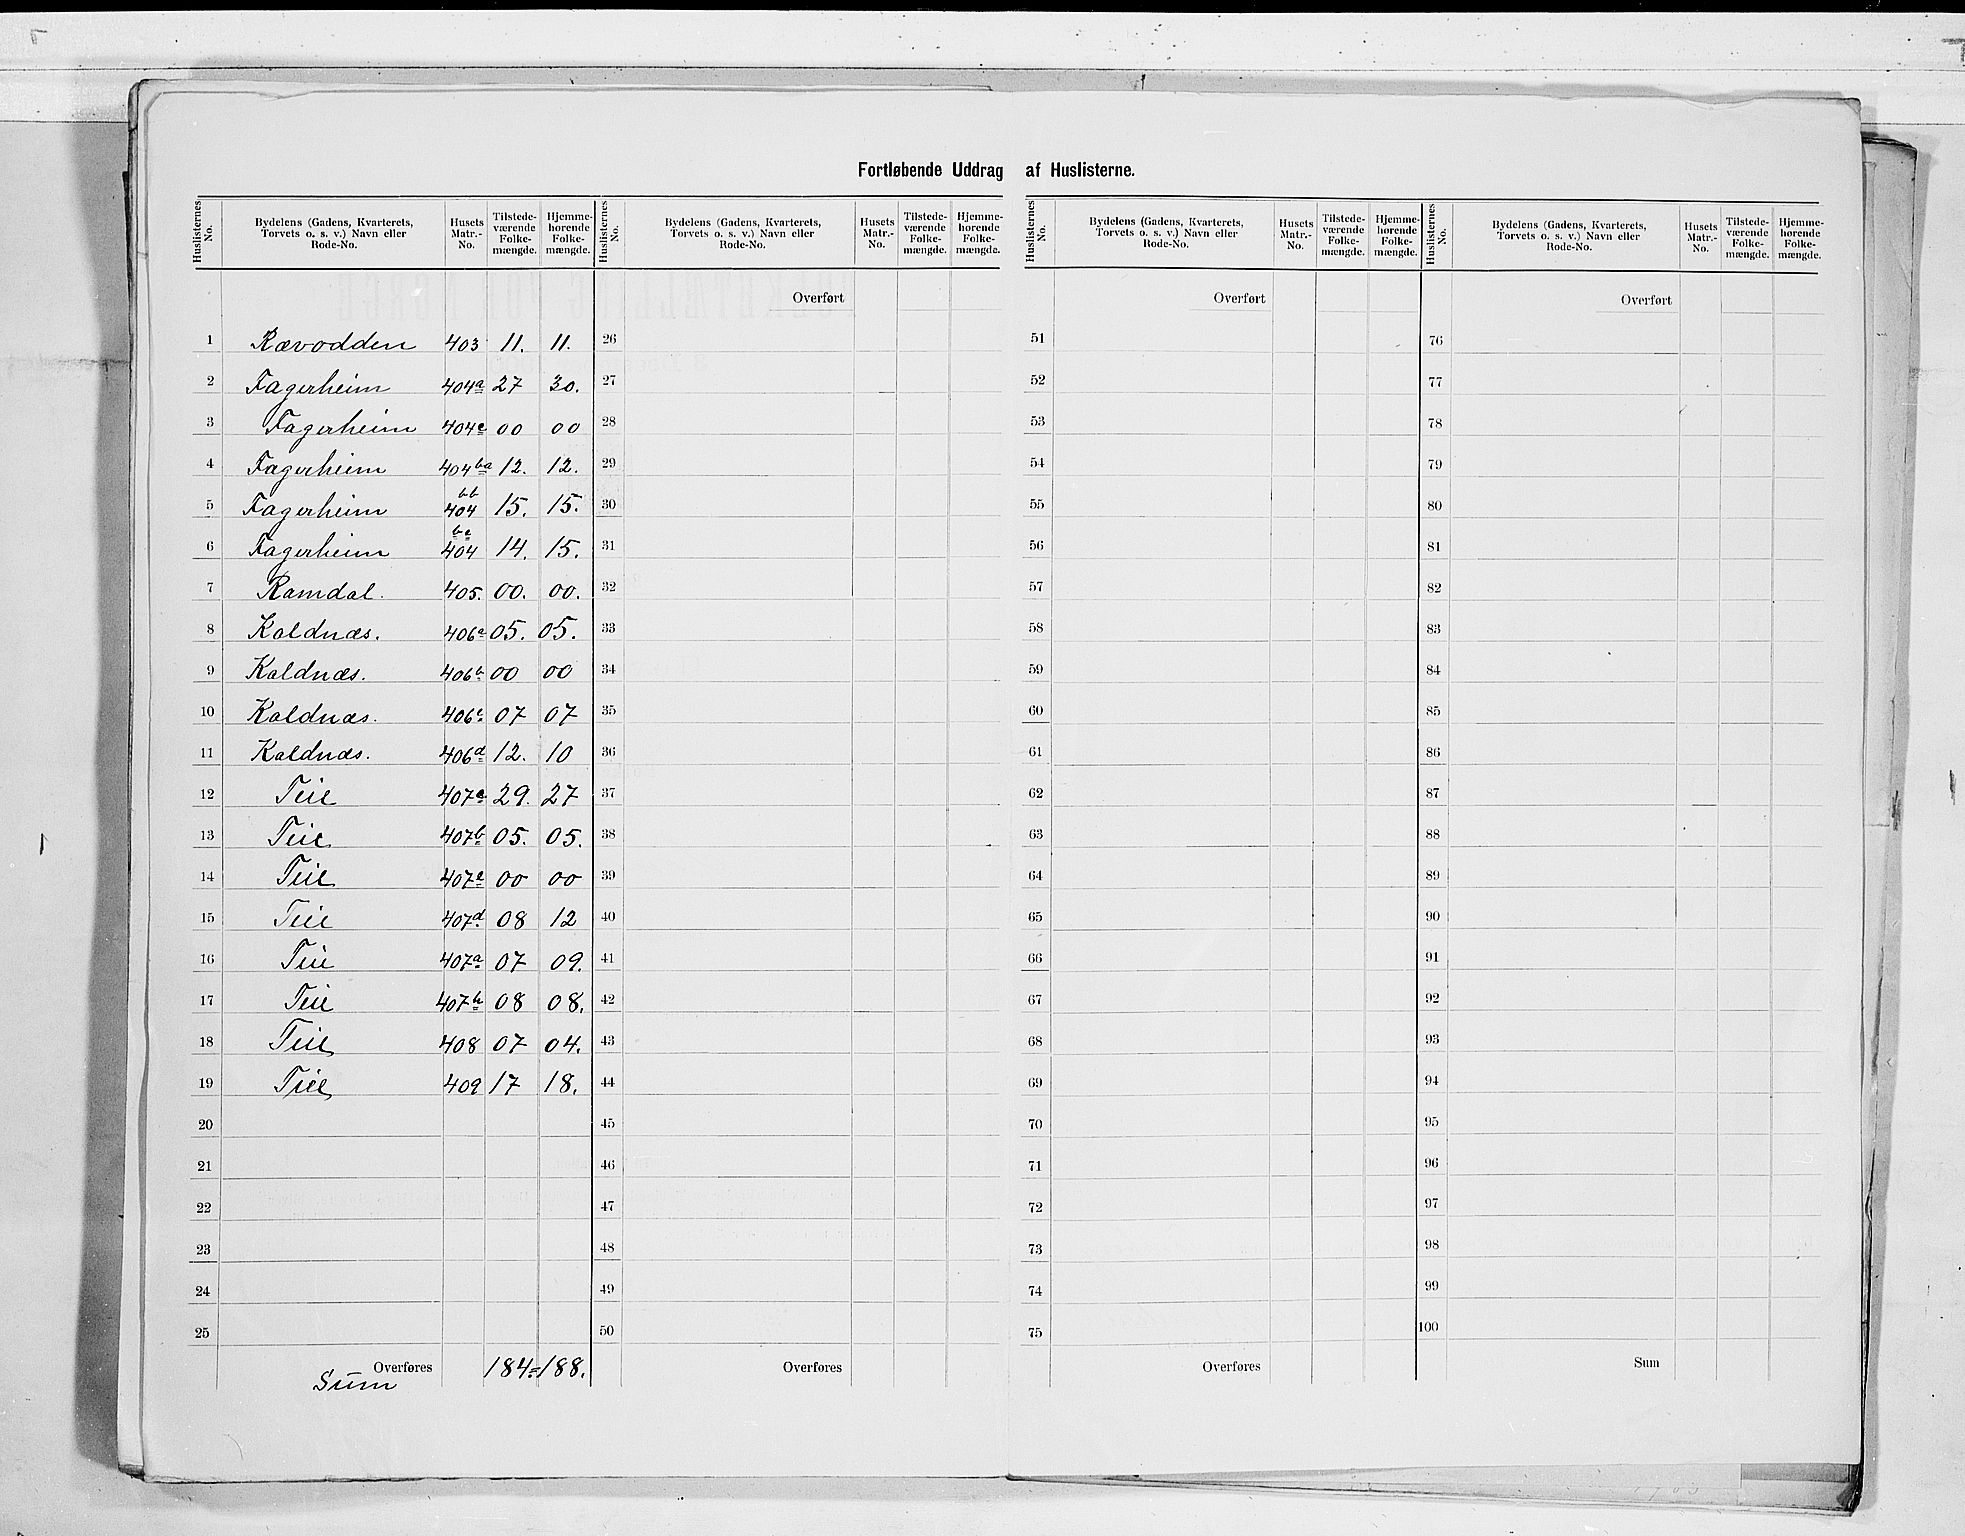 Fortløbende Uddrag af Huslisterne.
Huslisternes No. Bydelens (Gadens, Kvarterets, Torvets o. s. v.) Navn eller Rode-No. Husets Matr.-No. Tilstede-værende Folke-mængde. Hjemme-hørende Folke-mængde.
Huslisternes No. Bydelens (Gadens, Kvarterets, Torvets o. s. v.) Navn eller Rode-No. Husets Matr.-No. Tilstede-værende Folke-mængde. Hjemme-hørende Folke-mængde.
Huslisternes No. Bydelens (Gadens, Kvarterets, Torvets o. s. v.) Navn eller Rode-No. Husets Matr.-No. Tilstede-værende Folke-mængde. Hjemme-hørende Folke-mængde.
Huslisternes No. Bydelens (Gadens, Kvarterets, Torvets o. s. v.) Navn eller Rode-No. Husets Matr.-No. Tilstede-værende Folke-mængde. Hjemme-hørende Folke-mængde.
Overført Overført Overført
1 Rævodden 403 11. 11. 26 51 76
2 Fagerheim 404a 27 30. 27 52 77
3 Fagerheim 404c 00 00 28 53 78
4 Fagerheim 404ba 12. 12. 29 54 79
5 Fagerheim 404bb 15. 15. 30 55 80
6 Fagerheim 404bc 14. 15. 31 56 81
7 Ramdal. 405. 00. 00. 32 57 82
8 Kaldnæs. 406a 05. 05. 33 58 83
9 Kaldnæs. 406b 00 00 34 59 84
10 Kaldnæs. 406c 07 07 35 60 85
11 Kaldnæs. 406d 12. 10 36 61 86
12 Teie 407a 29. 27 37 62 87
13 Teie 407b 05. 05. 38 63 88
14 Teie 407c 00 00 39 64 89
15 Teie 407d 08 12 40 65 90
16 Teie 407a 07 09. 41 66 91
17 Teie 407b 08 08. 42 67 92
18 Teie 408 07 04. 43 68 93
19 Teie 409 17 18. 44 69 94
20 45 70 95
21 46 71 96
22 47 72 97
23 48 73 98
24 49 74 99
25 50 75 100
Overføres 184= 188. Overføres Overføres Sum
Sum